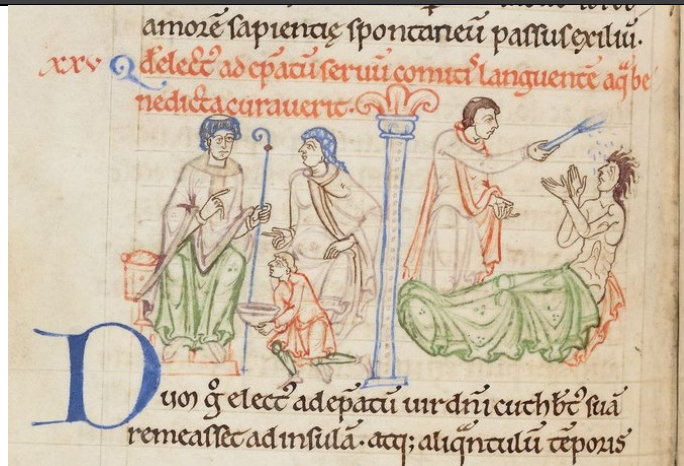 amorē sapientię spontaneū passus exiliū.
xxv Qđ elect᷒ ad ep̄atū seruū comitis languentē aq̄ be
nedicta curauerit.
Dum g̊ elect᷒ ad ep̄atū uir dn̄i cuthb̄t᷒ suā
remeasset ad insulā. atq; aliq̄ntulū tēporis